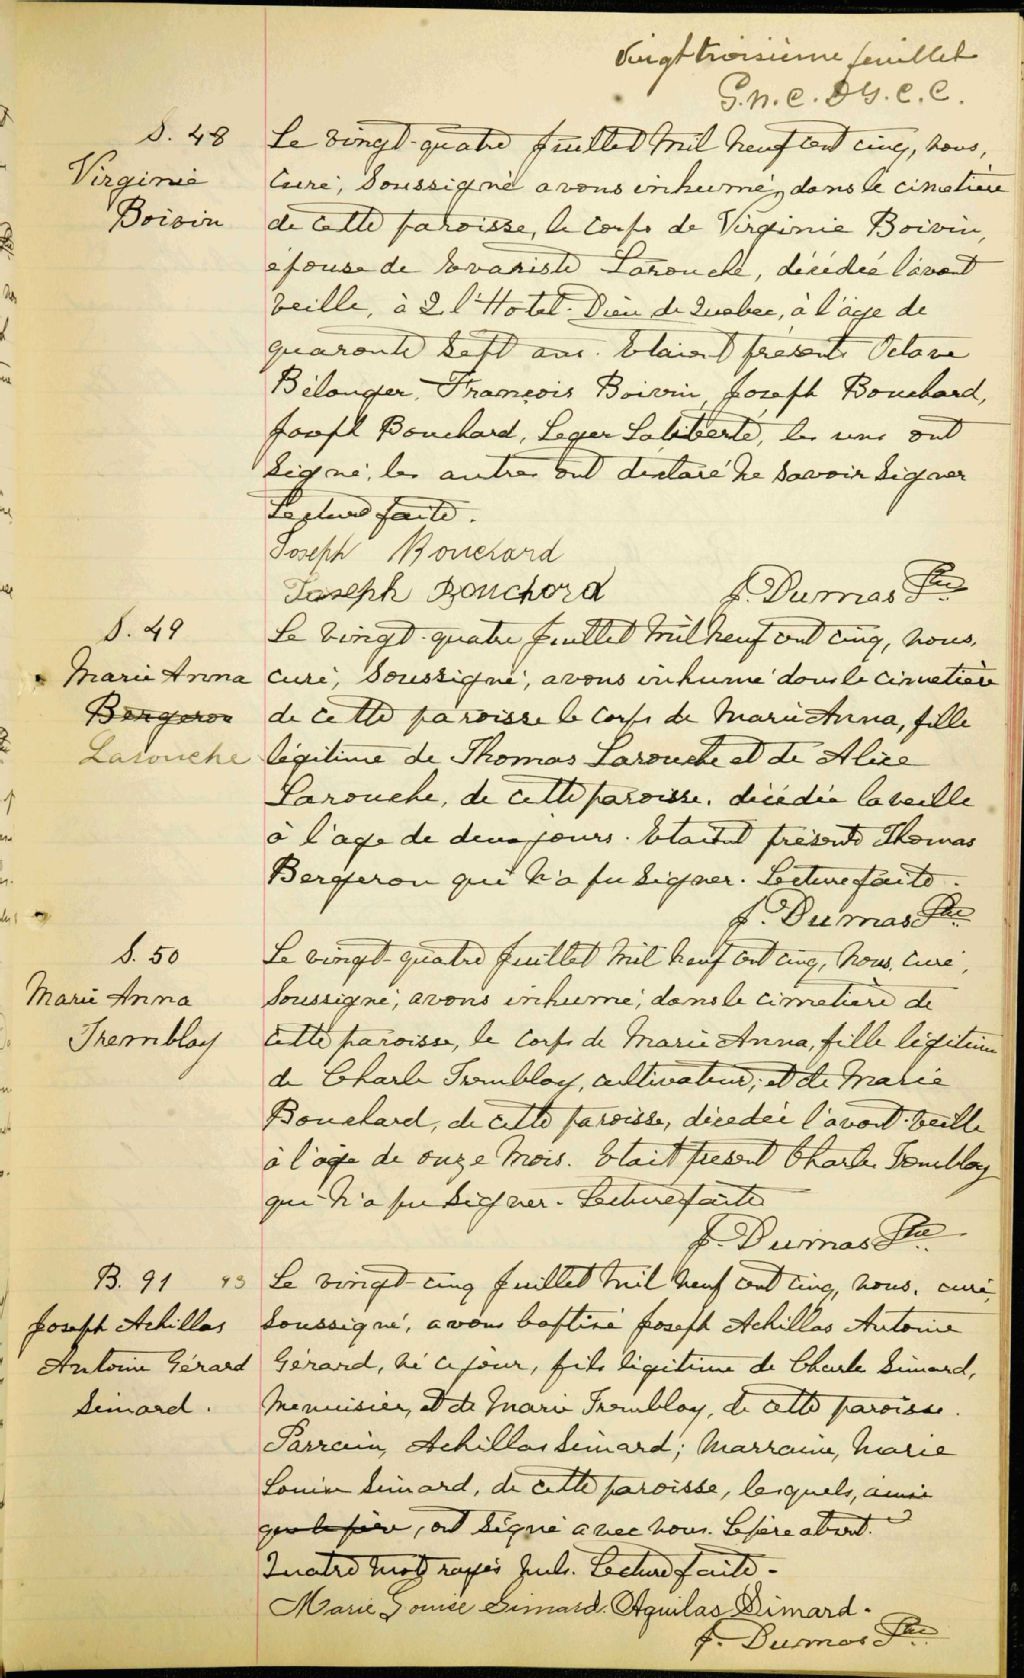 Vingt troisième feuillet
G. N. C. D G. C. C.
S. 48
Virginie
Boivin
Le vingt-quatre Juillet Mil neuf cent cinq, nous,
curé, soussigné avons inhumé, dans le cimetière
de cette paroisse, le corps de Virginie Boivin,
épouse de Evariste Larouche, décédée l'avant
veille, à Q l'Hotel-Dieu de Quebec, à l'âge de
quarante sept ans. Etaient présents Octave
Bélanger, François Boivin, Joseph Bouchard,
Joseph Bouchard, Leger Laliberté, les uns ont
signé, les autres ont déclaré ne savoir signer
Lecture faite.
Joseph Bouchard
Joseph Bouchard J. Dumas Ptre
S. 49
Marie Anna
Bergeron
Larouche
Le vingt-quatre Juillet Mil neuf cent cinq, nous,
curé, soussigné, avons inhumé dans le cimetière
de cette paroisse le corps de Marie Anna, fille
légitime de Thomas Larouche et de Alice
Larouche, de cette paroisse, décédée la veille
à l'age de deux jours. Etaient présents Thomas
Bergeron qui n'a pu signer. Lecture faite.
J. Dumas Ptre
S. 50
Marie Anna
Tremblay
Le vingt-quatre Juillet Mil neuf cent cinq, nous, curé,
soussigné, avons inhumé, dans le cimetière de
cette paroisse, le corps de Marie Anna, fille légitime
de Charles Tremblay, cultivateur, et de Marie
Bouchard, de cette paroisse, décedée l'avant-veille
à l'âge de onze mois. Etait présent Charles Tremblay
qui n'a pu signer. Lecture faite
J. Dumas Ptre
B. 91 43
Joseph Achillas
Antoine Gérard
Simard.
Le vingt-cinq Juillet Mil neuf cent cinq, nous, curé,
soussigné, avons baptisé Joseph Achillas Antoine
Gérard, né ce jour, fils légitime de Charles Simard,
menuisier, et de Marie Tremblay, de cette paroisse.
Parrain, Achillas Simard; Marraine, Marie
Louise Simard, de cette paroisse, lesquels, ainsi
que le père, ont signé avec nous. Le père absent.
Quatre mots rayés nuls. Lecture faite -
Marie Louise Simard. Aquilas Simard.
J. Dumas Ptre